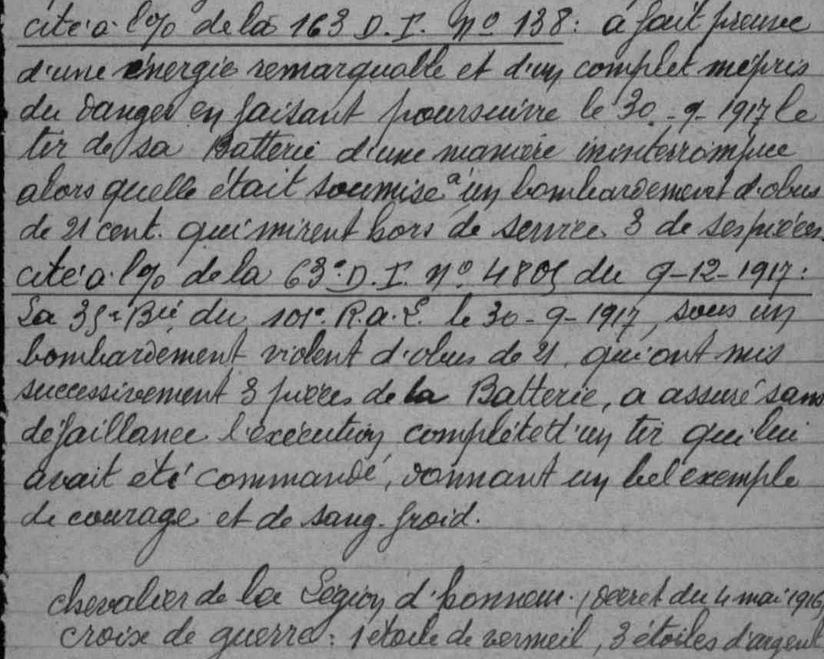 cité à l'o/o de la 163 D.I. No 138: a fait preuve
d'une énergie remarquable et d'un complet mépris
du danger en faisant poursuivre le 30-9-1917 le
tir de sa Batterie d'une manière ininterrompue
alors quelle était soumise à un bombardement d'obus
de 21 cent. qui mirent hors de service 3 de ses pièces.
cité à l'o/o de la 63e D.I. No 4805 du 9-12-1917:
La 35e Bie du 101e R.a.L. le 30-9-1917, sous un
bombardement violent d'obus de 21, qui ont mis
successivement 3 pièces de la Batterie, a assuré sans
défaillance l'exécution complète d'un tir qui lui
avait été commandé, donnant un bel exemple
de courage et de sang-froid.
chevalier de la Légion d'honneur (décret du 4 mai 1916
croix de guerre: 1 étoile de vermeil, 3 étoiles d'argent